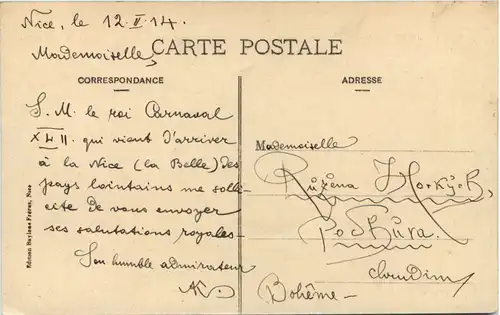 Nice, le 12. II. 14.
Mademoiselle,
CARTE POSTALE
CORRESPONDANCE
S. M. le roi Carnaval
XLII qui vient d'arriver
à la Nice (la Belle) des
pays lointains me solli-
cite de vous envoyer
ses salutations royales.
Son humble admirateur
AK.
Edition Baylone Frères, Nice
ADRESSE
Mademoiselle
Ružena Horkých
Poděbrava
Chrudim
Bohême